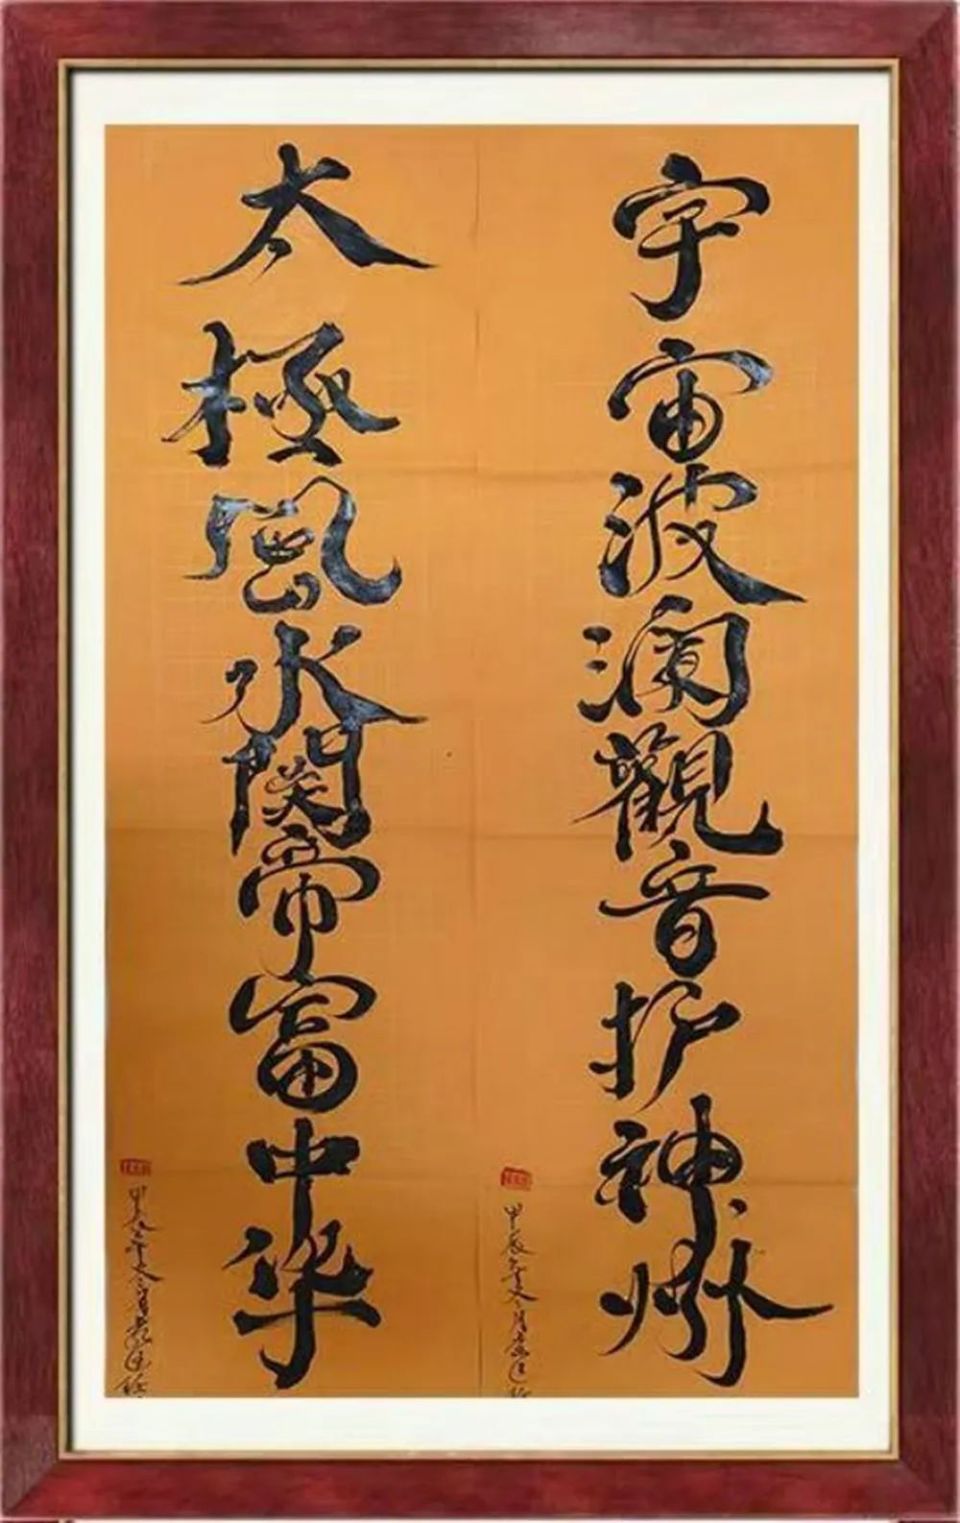 宇宙波澜觀音护神州
太極風水関帝富中华
甲辰年
甲辰年